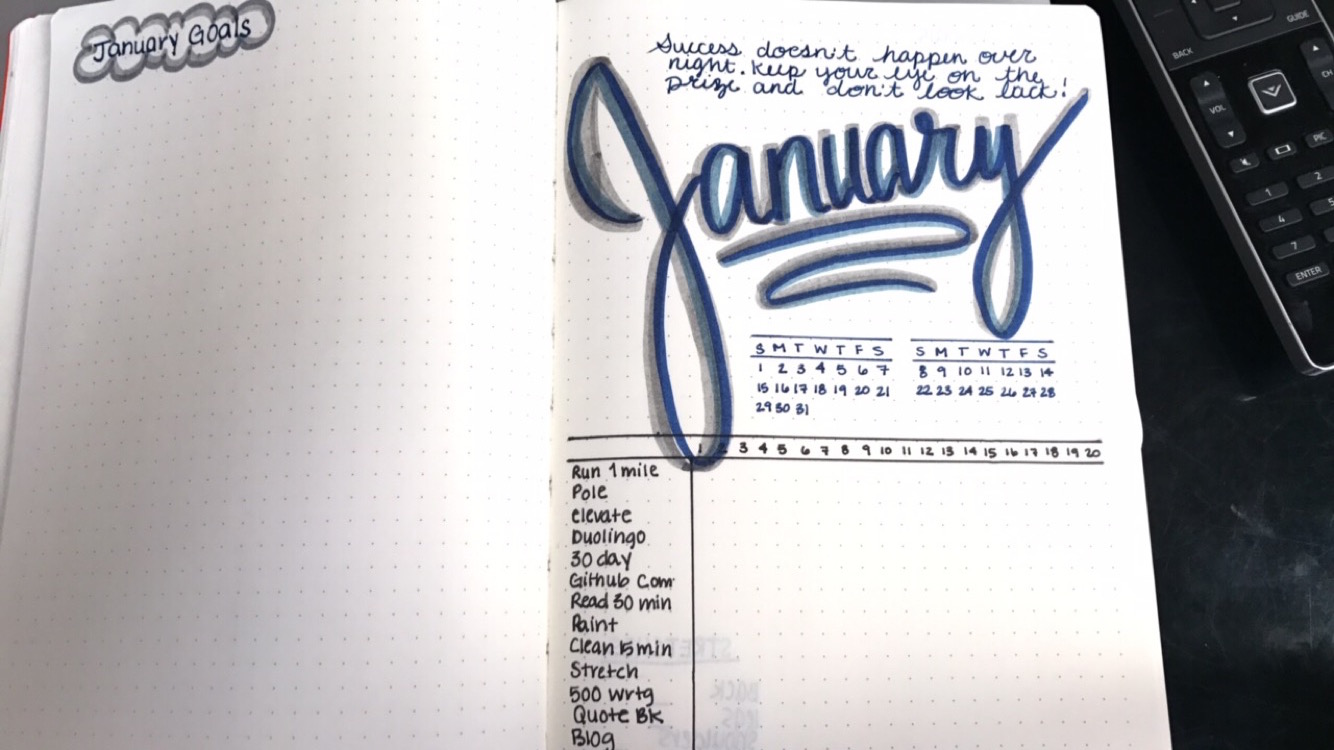 January Goals
Success doesn't happen over
night. Keep your eye on the
prize and don't look back!
January
S M T W T F S
1 2 3 4 5 6 7
15 16 17 18 19 20 21
29 30 31
S M T W T F S
8 9 10 11 12 13 14
22 23 24 25 26 27 28
1 2 3 4 5 6 7 8 9 10 11 12 13 14 15 16 17 18 19 20
Run 1 mile
Pole
elevate
Duolingo
30 day
Github Com
Read 30 min
Paint
Clean 15 min
Stretch
500 Wrtg
Quote BK
Blog
BACK
GUIDE
VOL
CH
PIC
1 2
4 5
7
ENTER